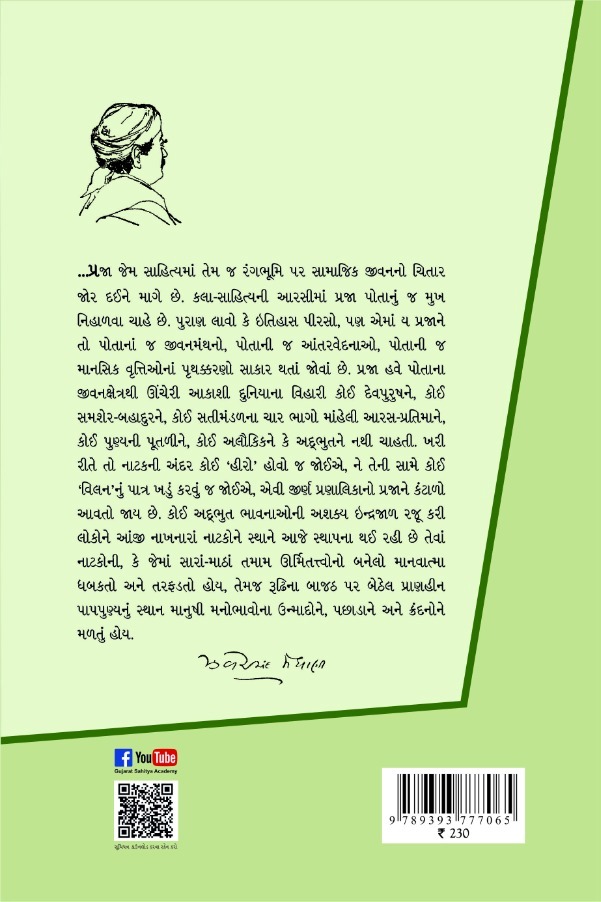 ...પ્રજા જેમ સાહિત્યમાં તેમ જ રંગભૂમિ પર સામાજિક જીવનનો ચિતાર
જોર દઈને માગે છે. કલા-સાહિત્યની આરસીમાં પ્રજા પોતાનું જ મુખ
નિહાળવા ચાહે છે. પુરાણ લાવો કે ઇતિહાસ પીરસો, પણ એમાં ય પ્રજાને
તો પોતાનાં જ જીવનમંથનો, પોતાની જ આંતરવેદનાઓ, પોતાની જ
માનસિક વૃત્તિઓનાં પૃથક્કરણો સાકાર થતાં જોવાં છે. પ્રજા હવે પોતાના
જીવનક્ષેત્રથી ઊંચેરી આકાશી દુનિયાના વિહારી કોઈ દેવપુરુષને, કોઈ
સમશેર-બહાદુરને, કોઈ સતીમંડળના ચાર ભાગો માંહેલી આરસ-પ્રતિમાને,
કોઈ પુણ્યની પૂતળીને, કોઈ અલૌકિકને કે અદ્ભુતને નથી ચાહતી. ખરી
રીતે તો નાટકની અંદર કોઈ ‘હીરો’ હોવો જ જોઈએ, ને તેની સામે કોઈ
‘વિલન’નું પાત્ર ખડું કરવું જ જોઈએ, એવી જીર્ણ પ્રણાલિકાનો પ્રજાને કંટાળો
આવતો જાય છે. કોઈ અદ્ભુત ભાવનાઓની અશક્ય ઇન્દ્રજાળ રજૂ કરી
લોકોને આંજી નાખનારાં નાટકોને સ્થાને આજે સ્થાપના થઈ રહી છે તેવાં
નાટકોની, કે જેમાં સારાં-માઠાં તમામ ઊર્મિતત્ત્વોનો બનેલો માનવાત્મા
ધબકતો અને તરફડતો હોય, તેમજ રૂઢિના બાજઠ પર બેઠેલ પ્રાણહીન
પાપપુણ્યનું સ્થાન માનુષી મનોભાવોના ઉન્માદોને, પછાડાને અને ક્રંદનોને
મળતું હોય.
ઝવેરચંદ મેઘાણી
f YouTube
Gujarat Sahitya Academy
9 789393 777065
₹ 230